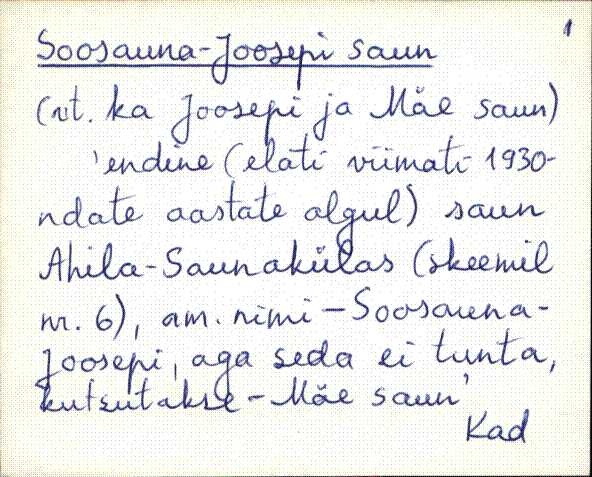 1
Soosauna-Joosepi saun
(vt. ka Joosepi ja Mäe saun)
'endine (elati viimati 1930-
ndate aastate algul) saun
Ahila-Saunakülas (skeemil
nr. 6), am. nimi – Soosauna-
Joosepi, aga seda ei tunta,
kutsutakse – Mäe saun'
Kad